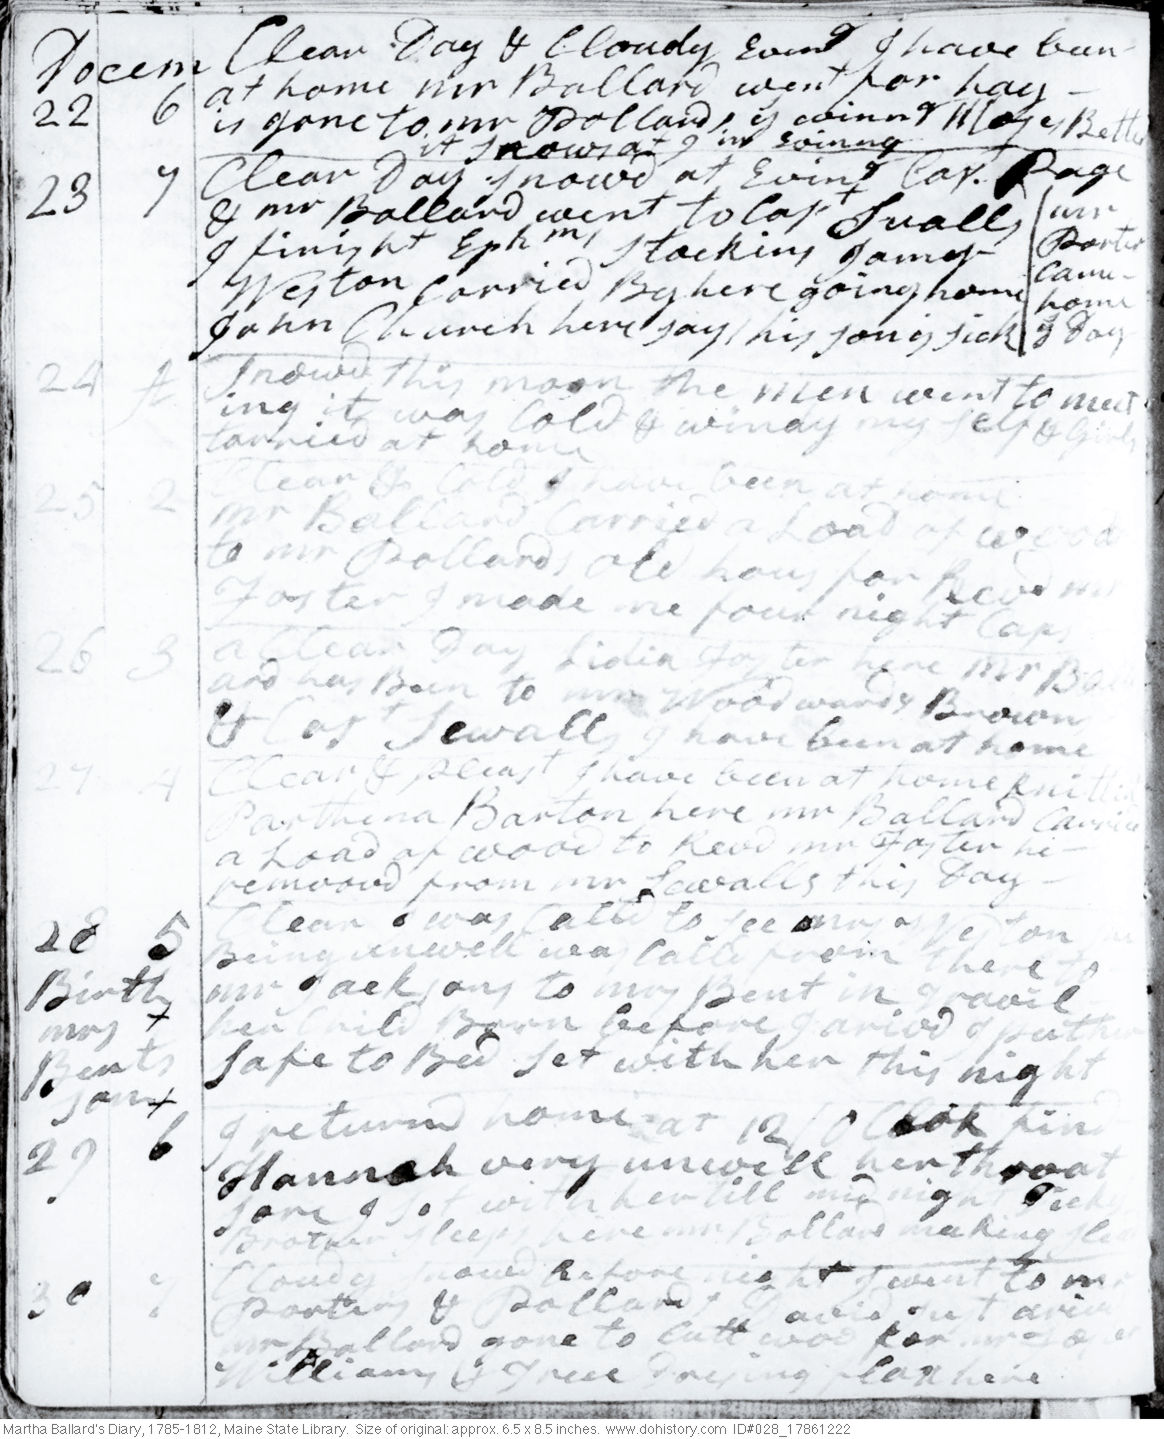 Docem Clear Day & Cloudy Eving I have been
22 6 at home mr Ballard went for hay -
is gone to mr Pollards ys evinng Moses Bettn
it snows at g in Evinng
23 7 Clear Day snowd at Eving Capt. Page
& mr Ballard went to Capt Sualls
I finisht Ephms stockins James
Weston Carried By here going home
John Church here says his son is sick
mr
Porter
Came
home
ys Day
24 A Snowd this morn the men went to meet
ing it was Cold & windy my self & Girls
tarried at home
25 2 Clear & Cold I have been at home
mr Ballard Carried a Load of wood
to mr Pollards old hous for Revd mr
Foster I made me four night Caps
26 3 a Clear Day Lidia Foster here mr Ball
ard has Been to mr Woodwards Brown
& Capt Sewalls I have been at home
27 4 Clear & pleast I have been at home knitting
Parthena Barton here mr Ballard Carried
a Load of wood to Revd mr Foster he
removd from mr Sewalls this Day -
28 5 Clear I was Calld to see mrs Weston
Being unwell was Calld from there to
Birth mr Jacksons to mrs Bent in gravil
mrs x her Child Born before I arivd I put her
Bents safe to Bed set with her this night
son x
29 6 I returnd home at 12 / O Clok find
Hannah very unwell her throat
sore I set with her till midnight
Brother sleeps here mr Ballard making sled
30 7 Cloudy snowd before night I went to mr
Porters & Pollards David just arivd
mr Ballard gone to Cutt wood for mr
Williams & Dresing flax here
Martha Ballard's Diary, 1785-1812, Maine State Library. Size of original: approx. 6.5 x 8.5 inches. www.dohistory.com ID#028_17861222